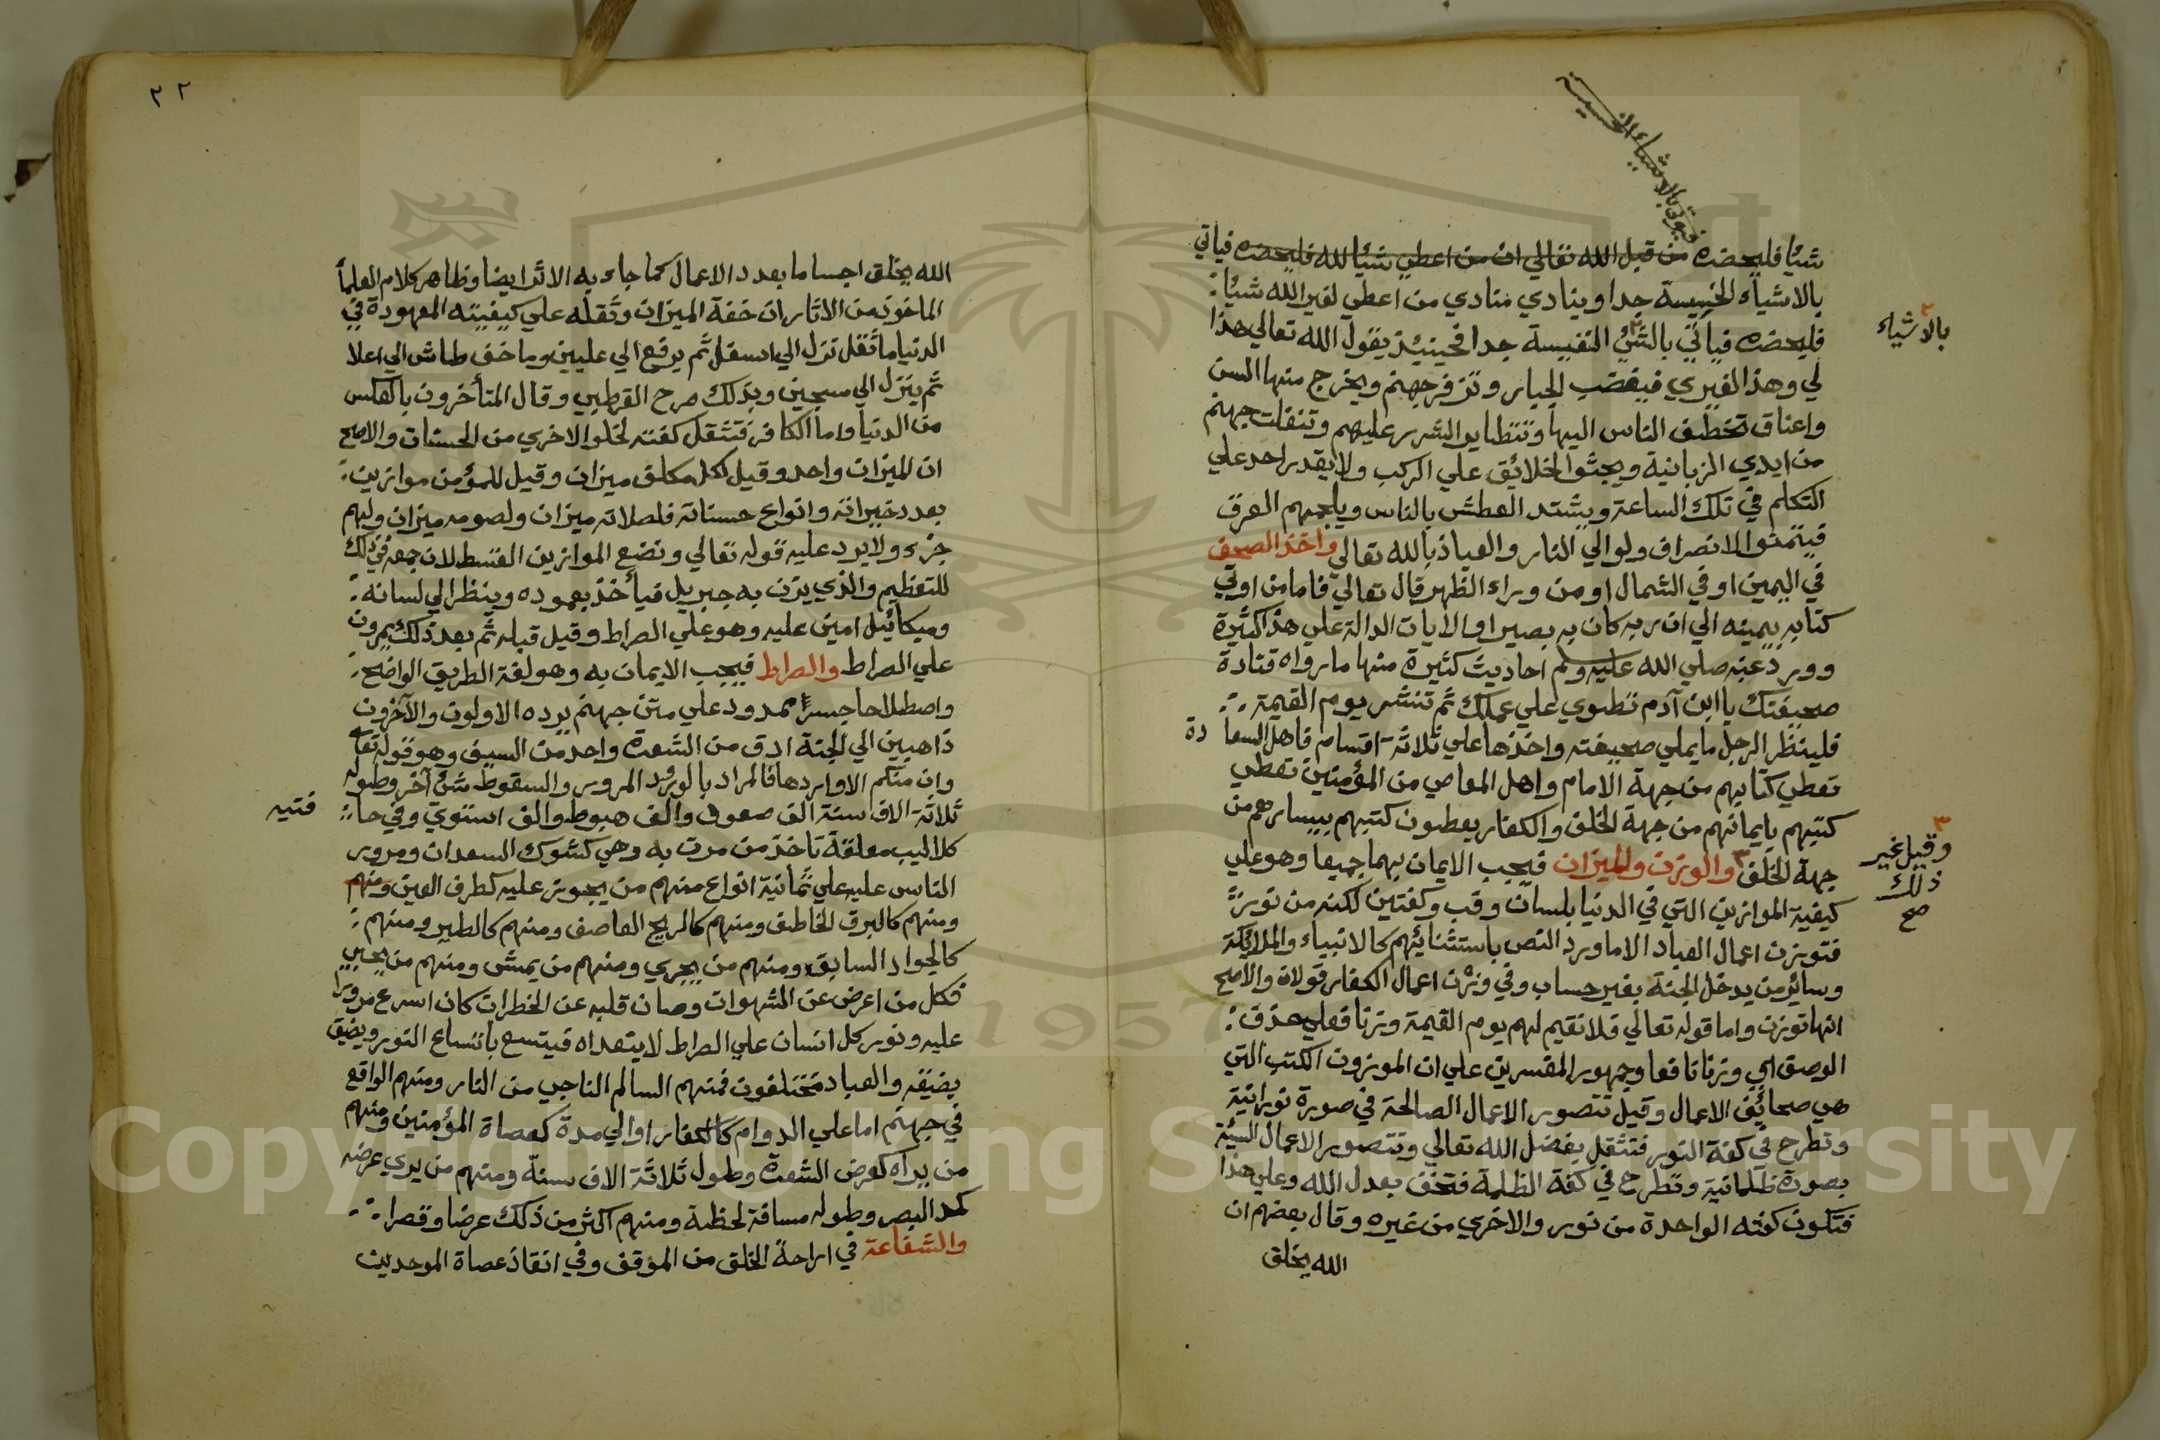 شيئا فليحضره من قبل الله تعالي ان من اعطي شيئا لله فليحضره فياتي
بالاشياء الخسيسة جدا وينادي منادي من اعطي لغير الله شيئا
فليحضره فياتي بالشئ النفيسة جدا فحينيئذ يقول الله تعالي هذا
لي وهذا لغيري فيغضب الجبار وتزفر جهنم ويخرج منها السن
واعناق تخطف الناس اليها وتتطاير الشرر عليهم وتنفلت جهنم
من ايدي الزبانية ويجثوا الخلائق علي الركب ولا يقدر احد علي
التكلم في تلك الساعة ويشتد العطش بالناس ويلجمهم العرق
فيتمنوا الانصراف ولو الي النار والعياذ بالله تعالي واخذ الصحف
في اليمين او في الشمال او من وراء الظهر قال تعالي فاما من اوتي
كتابه بيمينه الي ان ربه كان به بصيرا والايات الدالة علي هذا كثيرة
وورد عنه صلي الله عليه وسلم احاديث كثيرة منها ما رواه قتادة
صحيفتك يا ابن آدم تطوي علي عملك ثم تنشر يوم القيمة
فلينظر الرجل ما يملي صحيفته واخذها علي ثلاثة اقسام فاهل السعادة
تعطي كتابهم من جهة الامام واهل المعاصي من المؤمنين تعطي
كتبهم بايمانهم من جهة الخلف والكفار يعطون كتبهم بيسارهم من
جهة الخلف والوزن والميزان فيجب الايمان بهما جميعا وهو علي
كيفية الموازين التي في الدنيا بلسان وقب وكفتين لكنه من نور
فتوزن اعمال العباد الا ما ورد النص باستثنائهم كالانبياء والملائكة
وسائر من يدخل الجنة بغير حساب وفي وزن اعمال الكفار قولان والاصح
انها توزن واما قوله تعالي فلا نقيم لهم يوم القيمة وزنا فعلي حذف
الوصف اي وزنا نافعا وجمهور المفسرين علي ان الموزون الكتب التي
هي صحائف الاعمال وقيل تتصور الاعمال الصالحة في صورة نورانية
وتطرح في كفة النور فتثقل بفضل الله تعالي وتتصور الاعمال السيئة
بصورة ظلمانية وتطرح في كفة الظلمة فتخف بعدل الله وعلي هذا
فتكون كفته الواحدة من نور والاخري من غيره وقال بعضهم ان
الله يخلق
فيؤتي بالاشياء الخسيسة
٢
بالاشياء
٣
وقيل غير
ذلك
صح
٢٢
الله يخلق اجساما بعدد الاعمال كما جاء به الاثر ايضا وظاهر كلام العلما
الماخوذ من الاثار ان خفة الميزان وثقله علي كيفيته المعهودة في
الدنيا ما ثقل نزل الي اسفل ثم يرفع الي عليين وما خف طاش الي اعلا
ثم ينزل الي سجين وبذلك صرح القرطبي وقال المتأخرون بالعكس
من الدنيا واما الكافر فتثقل كفته لخلوا الاخري من الحسنات والاصح
ان الميزان واحد وقيل لكل مكلف ميزان وقيل للمؤمن موازين
بعدد خيراته وانواع حسناته فلصلاته ميزان ولصومه ميزان وليهم
جزء ولا يرد عليه قوله تعالي ونضع الموازين القسط لان جمعه في ذلك
للتعظيم والذي يزن به جبريل فيأخذ بعموده وينظر الي لسانه
وميكائيل امين عليه وهو علي الصراط وقيل قبله ثم بعد ذلك يمرون
علي الصراط والصراط فيجب الايمان به وهو لغة الطريق الواضح
واصطلاحا جسرا ممدود علي متن جهنم يرده الاولون والآخرون
ذاهبين الي الجنة ادق من الشعرة واحد من السيف وهو قوله تعا
وان منكم الا واردها فالمراد بالورود المرور والسقوط شئ آخر وطوله
ثلاثة الاف سنة الف صعود والف هبوط والف استوي وفي حا
فتيه
كلاليب معلقة تاخذ من مرت به وهي كشوك السعدان ومرور
الناس عليه علي ثمانية انواع منهم من يجوز عليه كطرف العين ومنهم
ومنهم كالبرق الخاطف ومنهم كالريح العاصف ومنهم كالطير ومنهم
كالجواد السابق ومنهم من يجري ومنهم من يمشي ومنهم من يحبي
فكل من اعرض عن الشهوات وصان قلبه عن الخطرات كان اسرع مرورا
عليه ونور كل انسان علي الصراط لا يتعداه فيتسع باتساع النور ويضيق
بضيقه والعباد مختلفون فمنهم السالم الناجي من النار ومنهم الواقع
في جهنم اما علي الدوام كالكفار او الي مدة كعصاة المؤمنين ومنهم
من يراه كعرض الشعرة وطول ثلاثة الاف سنة ومنهم من يري عرضه
كمد البصر وطوله مسافة لحظة ومنهم اكثر من ذلك عرضا وقصرا
والشفاعة في اراحة الخلق من الموقف وفي انقاذ عصاة الموحدين
1957
Copyright © King Saud University